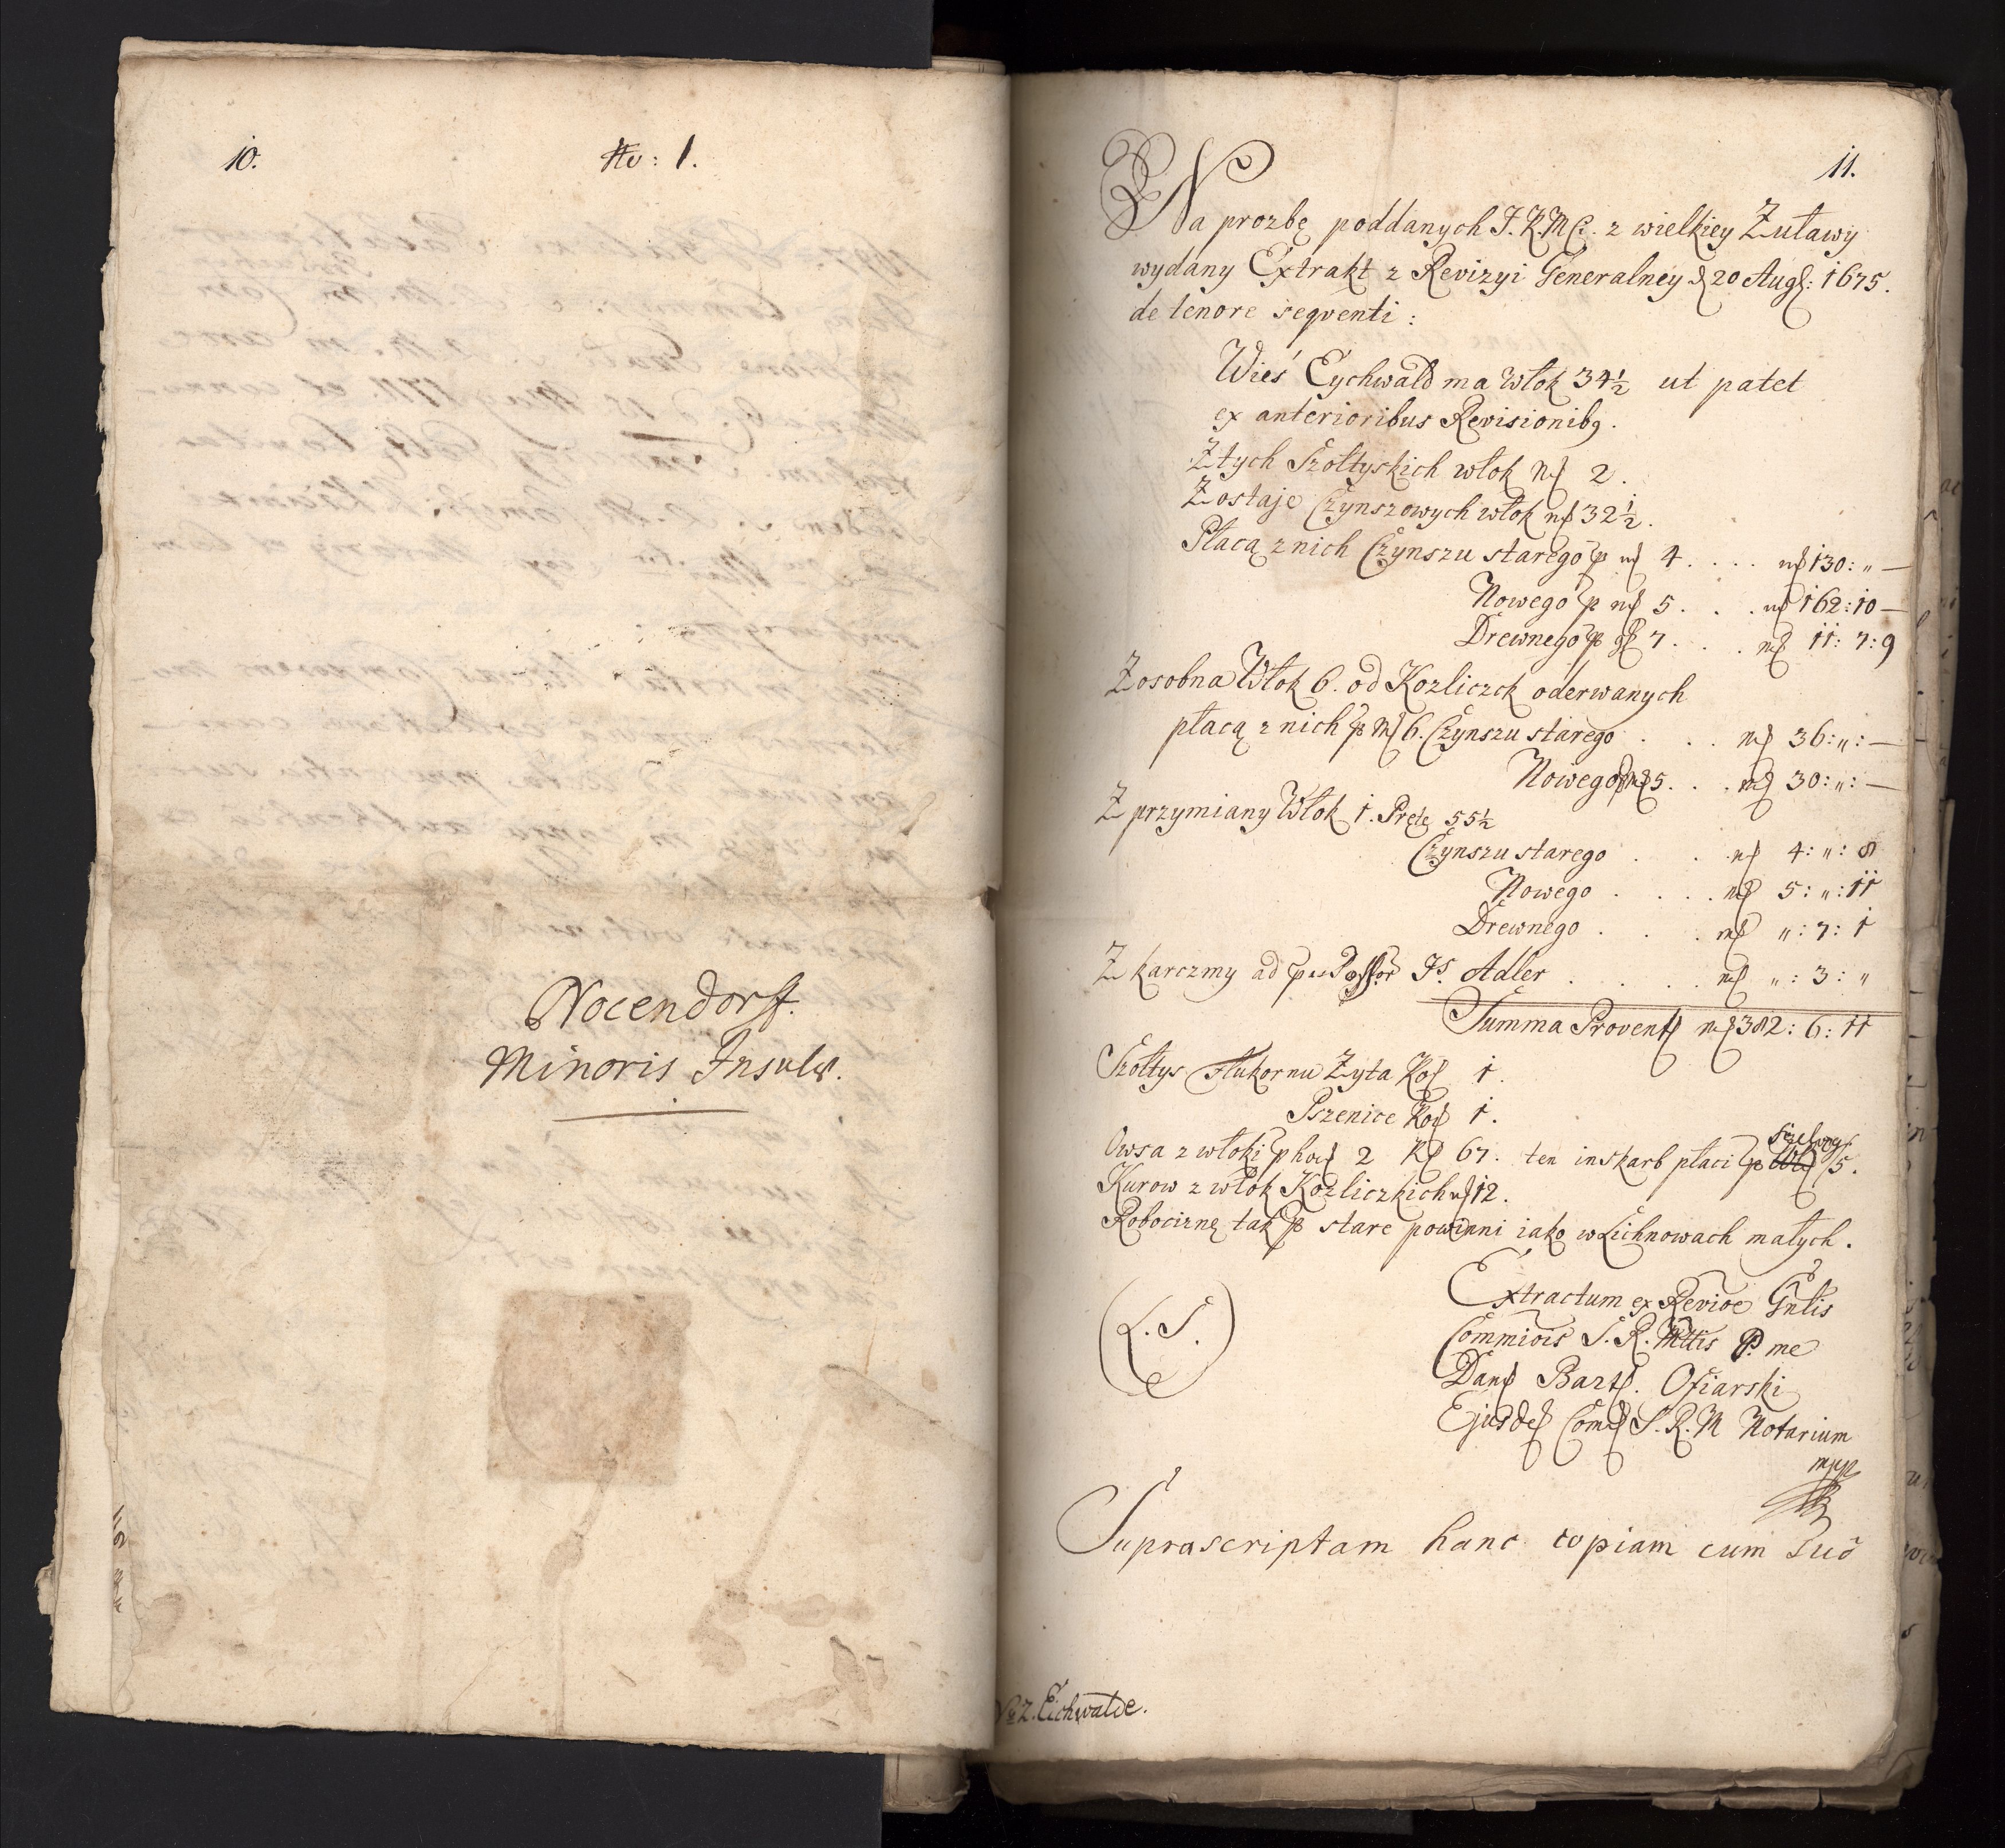 10.
No: 1.
Nocendorff.
Minoris Insulæ.
11.
Na prozbę poddanych J.K.MCi. z wielkiey Żuławy
wydany Extrakt z Revizyi Generalney d 20 Aug: 1675.
de tenore seqventi:
Wieś Eychwald ma Włok 34½ ut patet
ex anterioribus Revisionibq.
Z tych Szołtyskich włok N 2.
Zostaje Czynszowych włok n 32½.
Płacą z nich Czynszu starego p m 4. . . . m 130: „ —
Nowego p m 5. . . m 162:10 —
Drewnego p g 7. . . m 11: 7: 9
Zosobna Włok 6. od Kozliczek oderwanych
płacą z nich p M 6. Czynszu starego . . . m 36:„: —
Nowego p m 5. . . m 30:„: —
Z przymiany Włok 1. Pręty 55½
Czynszu starego . . m 4: „: 8
Nowego . . . . m 5: „: 11
Drewnego . . . m „: 7: 1
Z karczmy ad Adler . . . . m „: 3: „
Summa Provent m 382: 6: 11
Szołtys Żyta Ko 1.
Pszenice Ko 1.
Owsa z włoki p 2 K 67. ten inskarb płaci p 5.
Kurow z włok Kozliczkich n 12.
Robociznę tak p stare powinni iako w Lichnowach małych.
(L.S.)
Extractum ex Revioe Gnlis
Commiois S.R.Mttis P. me
Dan Bart. Ofiarski
Ejusde Com S.R.M Notarium
mpp
Suprascriptam hanc copiam cum suo
No 2. Eichwalde.